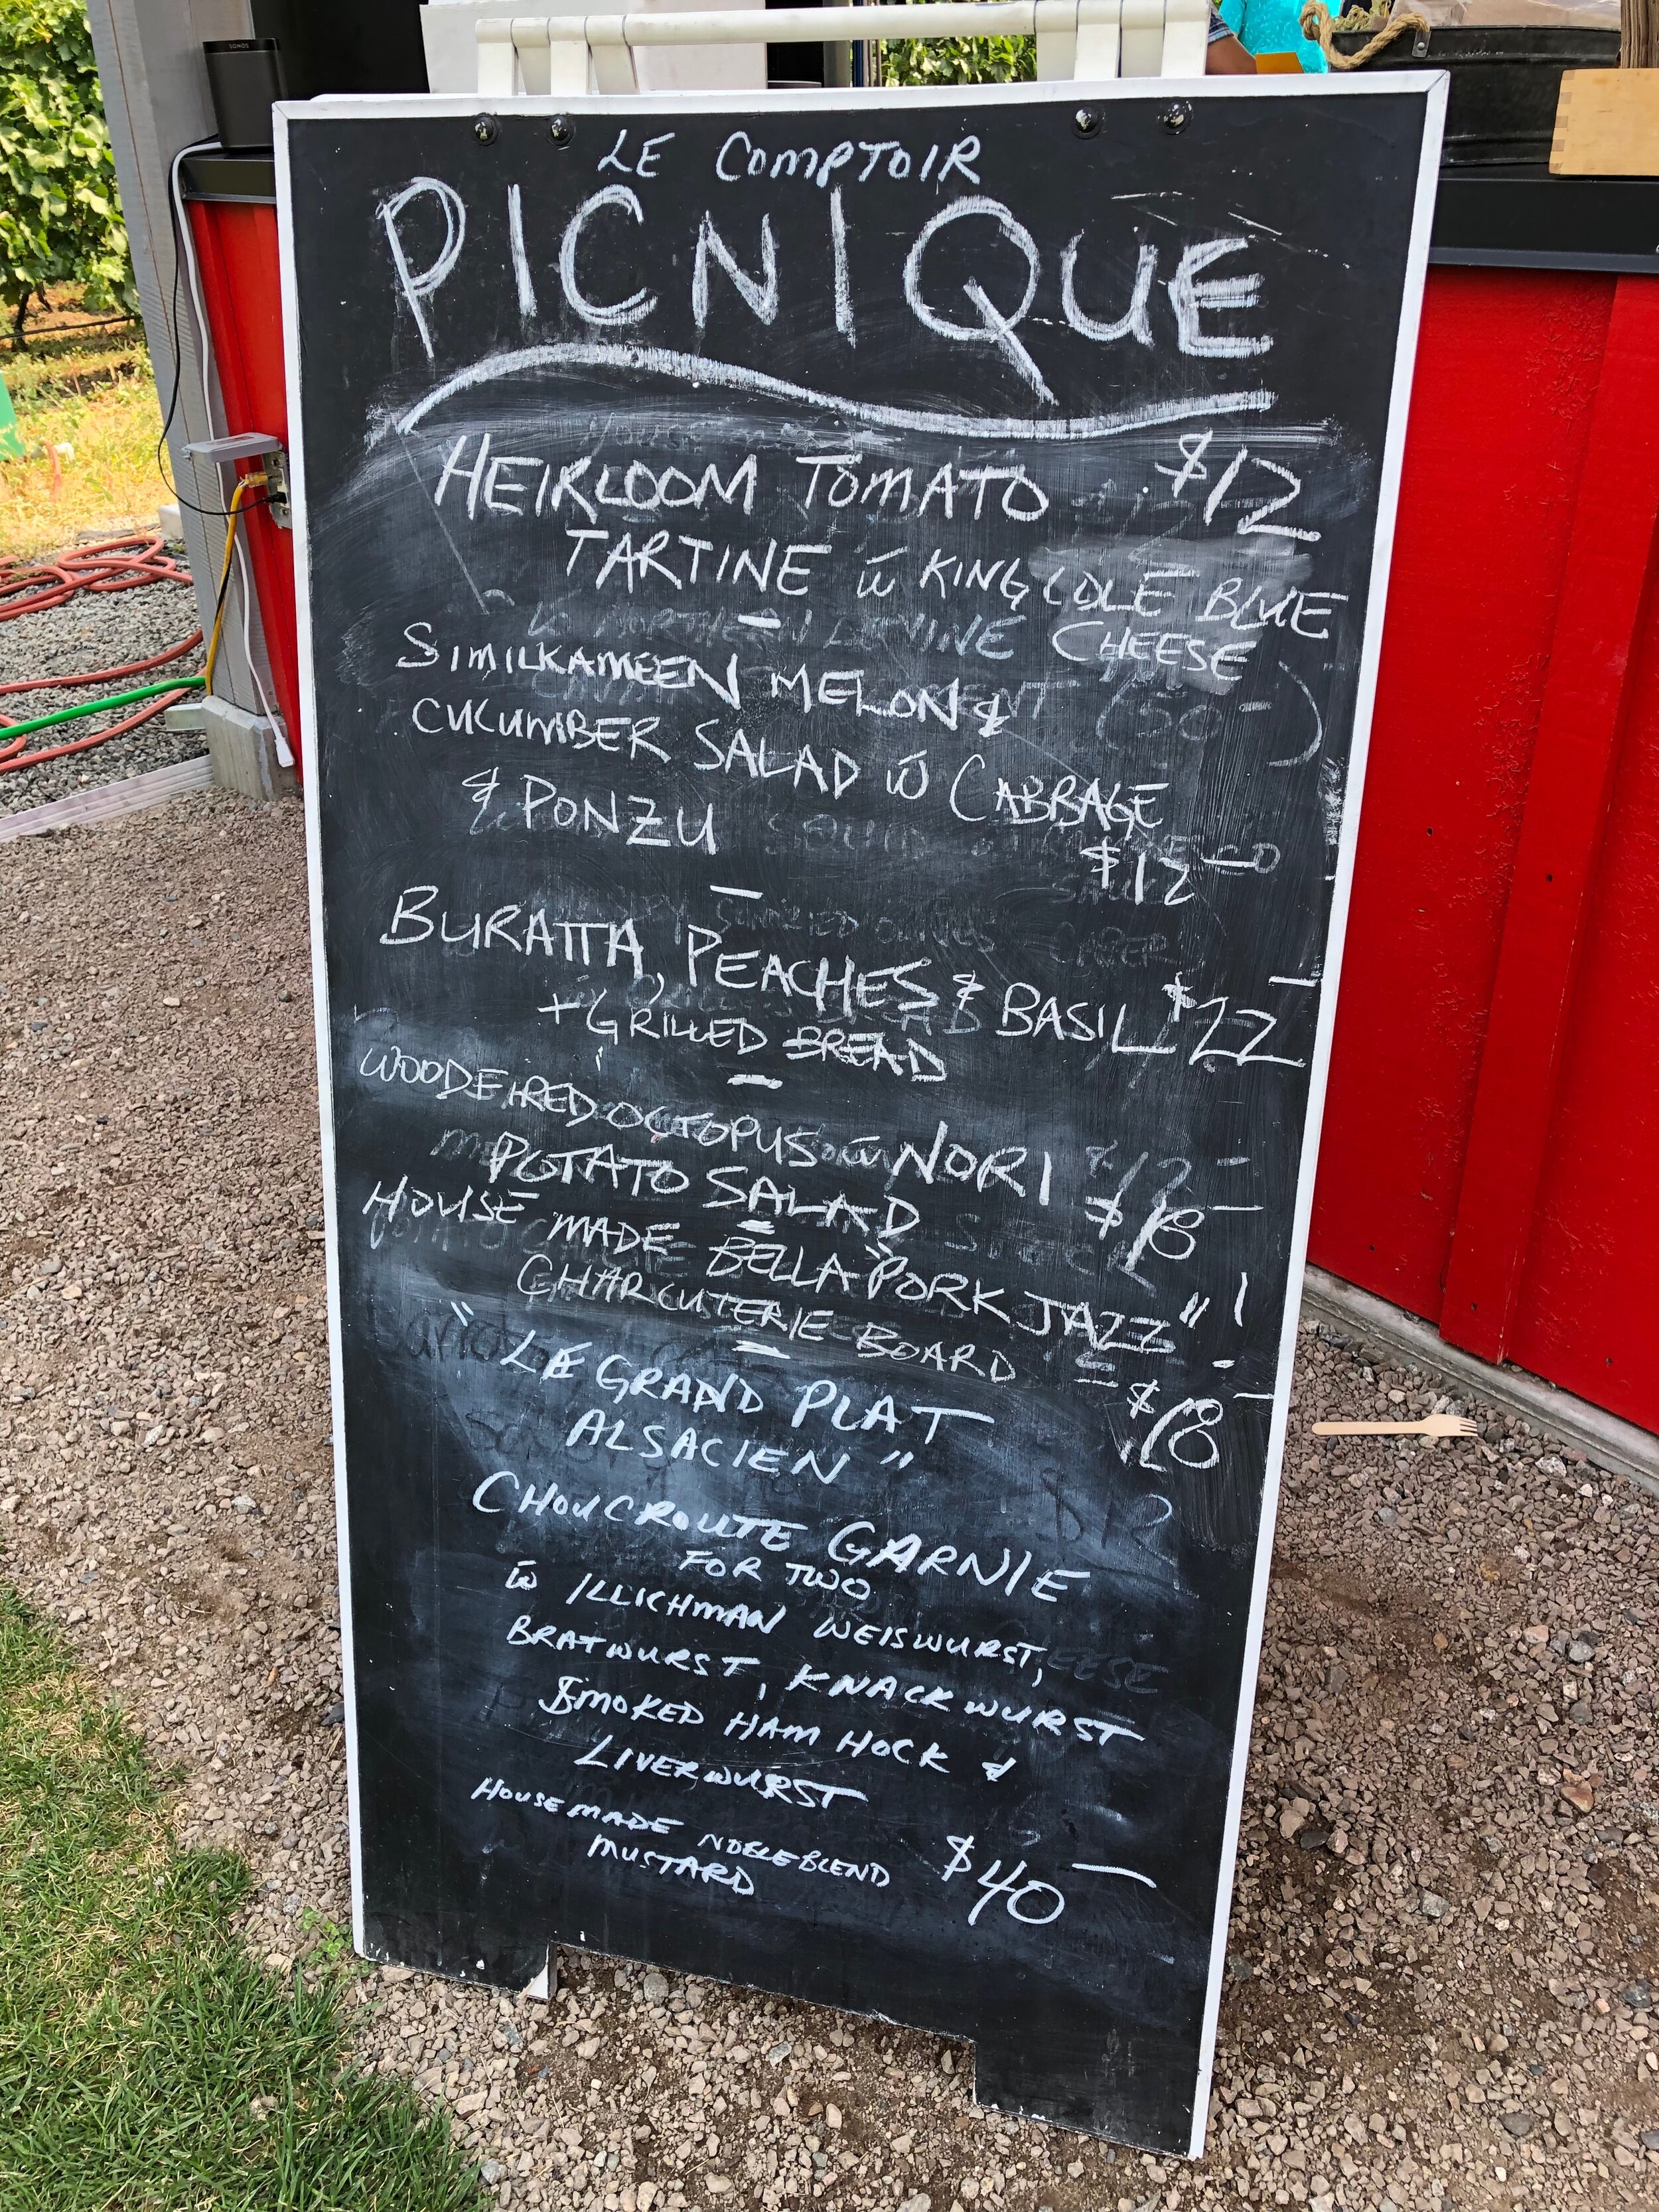 SONOS
LE COMPTOIR
PICNIQUE
HEIRLOOM TOMATO $12
TARTINE w̄ KING COLE BLUE
CHEESE
SIMILKAMEEN MELON &
CUCUMBER SALAD w̄ CABBAGE
& PONZU
$12
BURATTA, PEACHES & BASIL $22
+ GRILLED BREAD
WOODFIRED OCTOPUS w̄ NORI
POTATO SALAD $18
HOUSE MADE BELLA "PORK JAZZ"!
CHARCUTERIE BOARD
$18
"LE GRAND PLAT
ALSACIEN"
CHOUCROUTE GARNIE
FOR TWO
w̄ ILLICHMAN WEISWURST,
BRATWURST, KNACKWURST
SMOKED HAM HOCK &
LIVERWURST
HOUSEMADE NOBLE BLEND
MUSTARD
$40